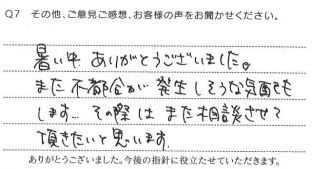 Q7 その他、ご意見ご感想、お客様の声をお聞かせください。
暑い中 ありがとうございました。
また 不都合が 発生しそうな気配でも
します… その際は また相談させて
頂きたいと思います.
ありがとうございました。今後の指針に役立たせていただきます。